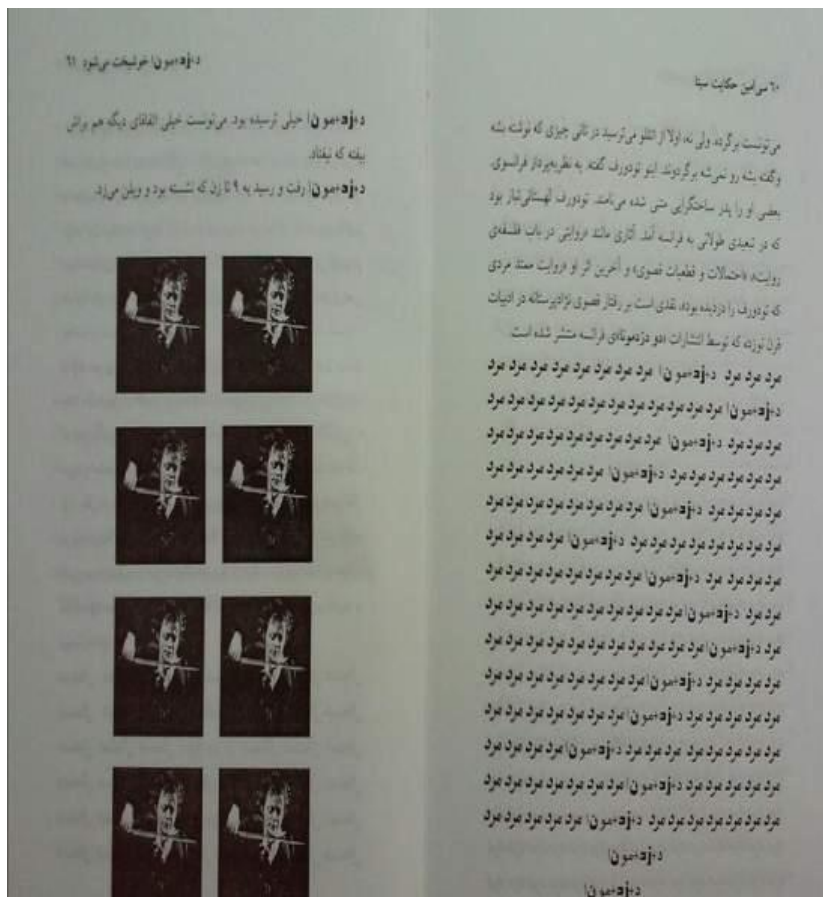 ۶۰ سی‌امین حکایت سیتا
می‌تونست برگرده. ولی نه. اولا از اتللو می‌ترسید در ثانی چیزی که نوشته بشه
و گفته بشه رو نمی‌شه برگردوند. اینو تودورف گفته. یه نظریه‌پرداز فرانسوی.
بعضی او را پدر ساختگرایی متنی شده می‌نامند. تودورف لهستانی‌تبار بود
که در تبعیدی طولانی به فرانسه آمد. آثاری مانند «روایتی در باب فلسفه‌ی
روایت»، «احتمالات و قطعیات قصوی» و آخرین اثر او «روایت ممتد مردی
که تودورف را دزدیده بود»، نقدی است بر رفتار قصوی نژادپرستانه در ادبیات
قرن نوزده که توسط انتشارات «دو دزدمونا»ی فرانسه منتشر شده است.
مرد مرد مرد د،ژد،مو ن ا مرد مرد مرد مرد مرد مرد مرد مرد
د،ژد،مو ن ا مرد مرد مرد مرد مرد مرد مرد مرد مرد مرد مرد
مرد مرد مرد د،ژد،مو ن ا مرد مرد مرد مرد مرد مرد مرد مرد
مرد مرد مرد مرد مرد د،ژد،مو ن ا مرد مرد مرد مرد مرد مرد
مرد مرد مرد مرد د،ژد،مو ن ا مرد مرد مرد مرد مرد مرد مرد
مرد مرد مرد مرد مرد مرد مرد د،ژد،مو ن ا مرد مرد مرد مرد
مرد مرد مرد مرد د،ژد،مو ن ا مرد مرد مرد مرد مرد مرد مرد
مرد مرد د،ژد،مو ن ا مرد مرد مرد مرد مرد مرد مرد مرد مرد
مرد د،ژد،مو ن ا مرد مرد مرد مرد مرد مرد مرد مرد مرد مرد
مرد مرد مرد مرد د،ژد،مو ن ا مرد مرد مرد مرد مرد مرد مرد
مرد مرد مرد مرد د،ژد،مو ن ا مرد مرد مرد مرد مرد مرد مرد
مرد مرد مرد مرد مرد مرد مرد د،ژد،مو ن ا مرد مرد مرد مرد
مرد مرد مرد مرد د،ژد،مو ن ا مرد مرد مرد مرد مرد مرد مرد
مرد مرد مرد مرد مرد مرد د،ژد،مو ن ا مرد مرد مرد مرد مرد
د،ژد،مو ن ا
د،ژد،مو ن ا
د،ژد،مو ن ا خوشبخت می‌شود ۶۱
د،ژد،مو ن ا خیلی ترسیده بود. می‌تونست خیلی اتفاقای دیگه هم براش
بیفته که نیفتاد.
د،ژد،مو ن ا رفت و رسید به ۹ تا زن که نشسته بود و ویلن می‌زد.